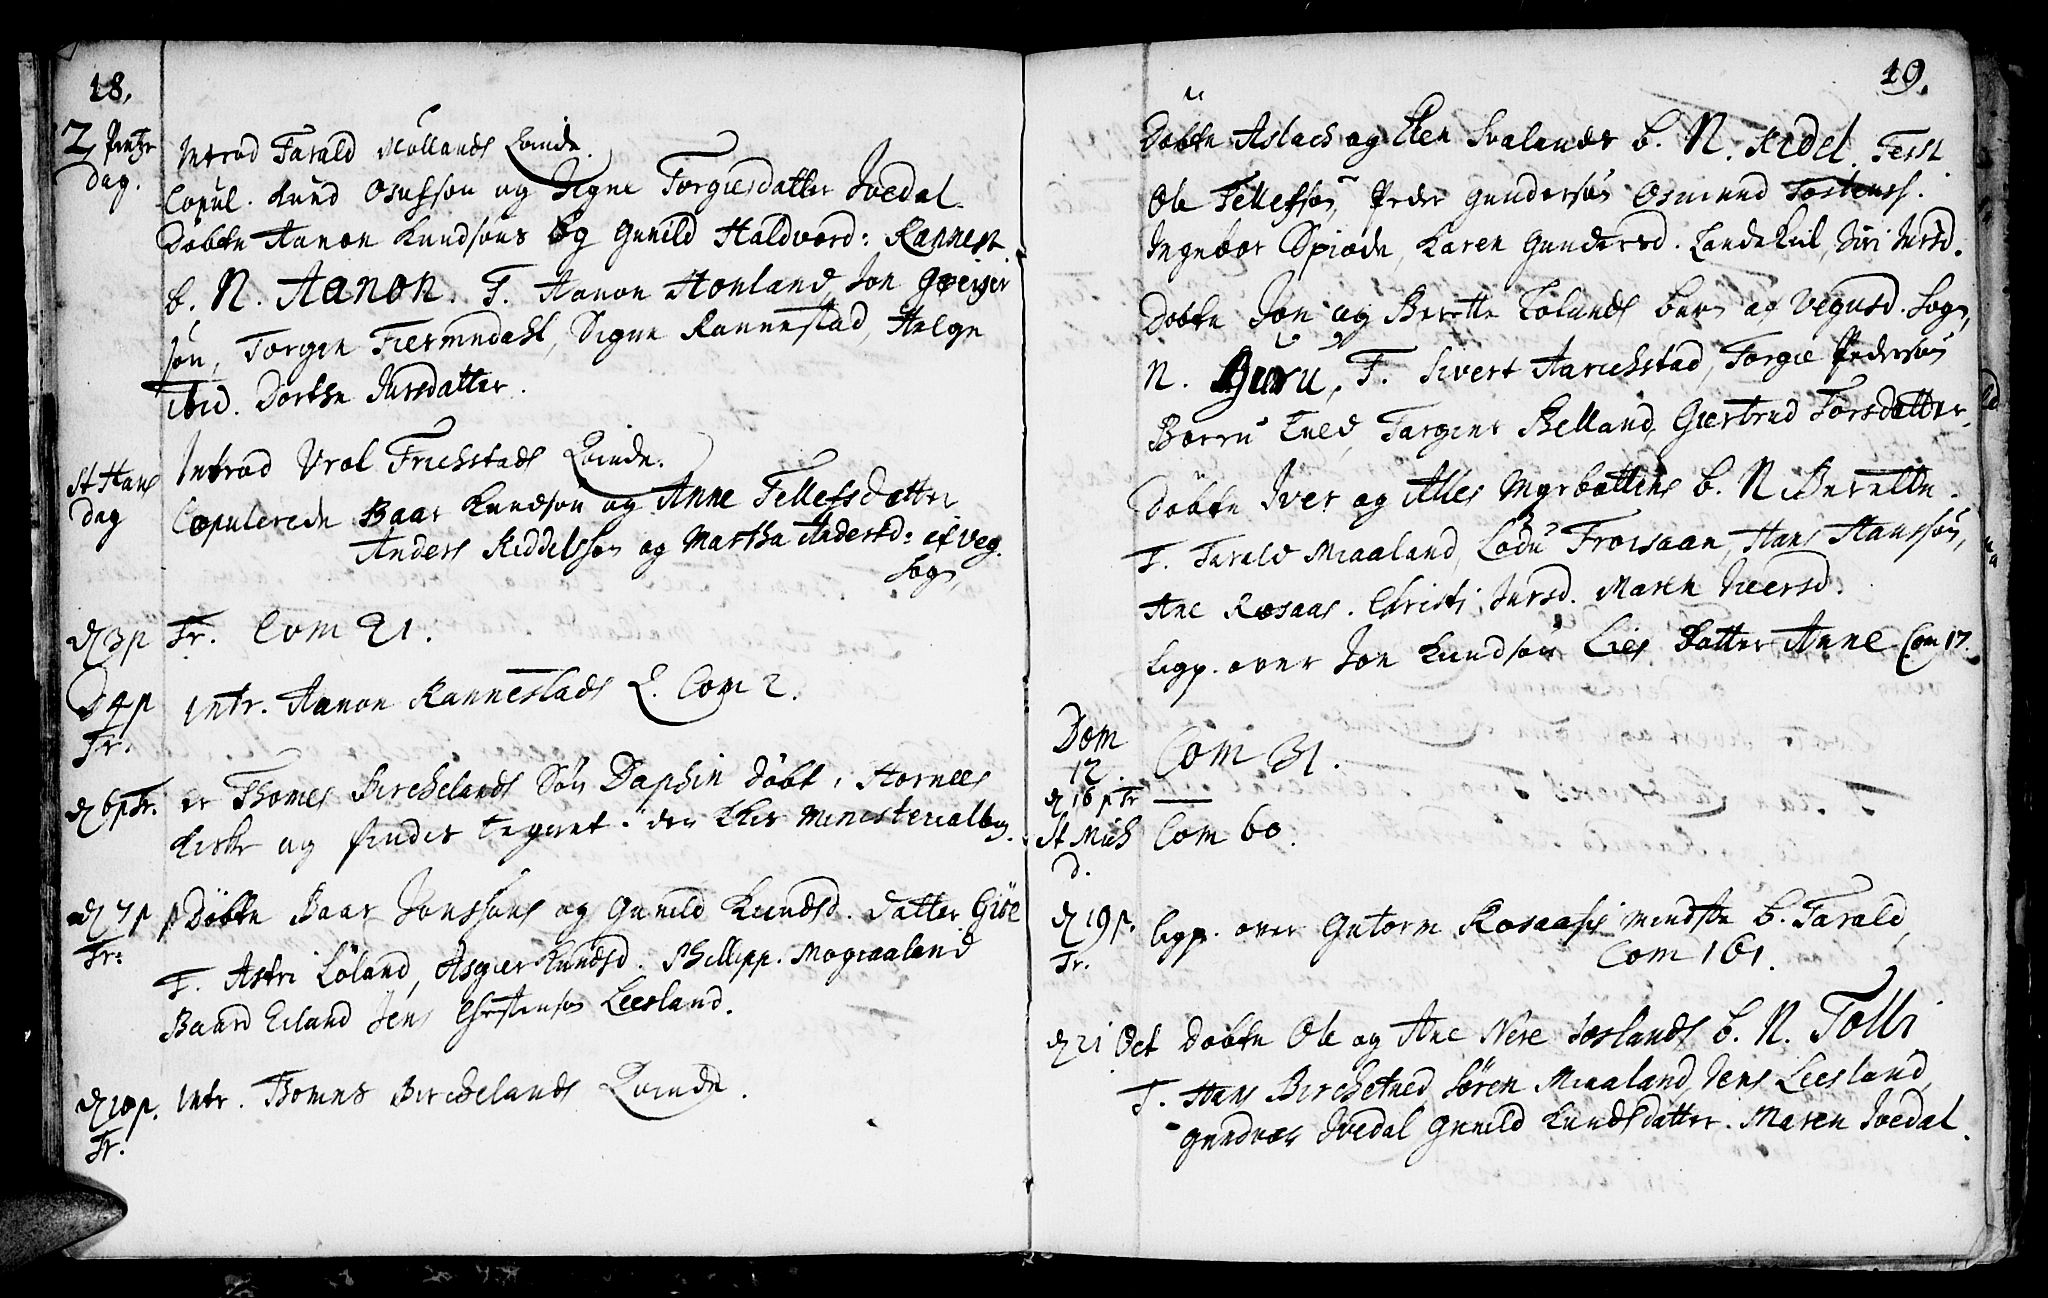 18.
2 Pintze dag. Introd Tarald Mollands Qvinde.
Copul. Knud Osufsøn og Signe Torgiersdatter Ivedal.
Døbte Aanon Knudsøns og Gunild Haldvord: Rannest.
b. N. Aanon. F. Aanon Honland, Jon
søn, Torgen, Signe Rannestad, Helge
ibid. Dorthe Jensdatter.
St Hans dag Introd Vrol Frichstads Qvinde.
Copulerede Baar Knudsøn og Anne Tellefsdatter
Anders Kiddelsøn og Martha Andersd: af Veg.
Sogn,
D 3 p Tr. Com 21.
D 4 p Tr. Intr. Aanon Rannestads Q. Com 2.
D 6 p Tr. er Thomes Birchelands Søn Daphin døbt i Hornees
Kirke og findes tegnet i den Kirk Ministerialbog.
D 7 p Tr: Døbte Baar Jonssøns og Gunild Knudsd. datter Giøe
F. Astri Løland, Asgier Knudsd. Phillipp. Mograaland
Baard Eiland Jens Christensøn Leesland.
D 10 p. Tr. Intr. Thomes Birchelands Qvinde.
19.
Døbte Aslach og Elen Svalands b. N. Kidel. Test
Ole Tellefsøn, Peder Gundersøn Osmund Tostens.
Ingebor Spiøde, Karen Gundersd. Landeküil, Siri Jensd.
Døbte Jon og Berette Tolands barn af Vegusd. Sogn,
N. Guru, F. Sivert Aarichstad, Torgie Pedersøn
Tved, Targier Belland, Giertrud Torsdatter.
Døbte Iver og Alles Myrbottens b. N. Berette.
F. Tarald Miaaland, Lodu Froisaan, Hans Hanssøn,
Ane Rosaas. Christi Jensd. Maren Iversd.
ligp. over Jon Knudsøn datter Anne Com 17.
Dom 12. Com 31.
D 16 p Tr
St Mich d. Com 60.
D 19 p. Tr. ligp. over Gutorm Rosaasis mindste b. Tarald,
Com 161.
D 21 Oct Døbte Ole og Ane Nere Joslands b. N. Tolli
F. Hans Birchetved, Søren Miaaland, Jens Leesland,
Ivedal Gunild Knudsdatter. Maren Ivedal.